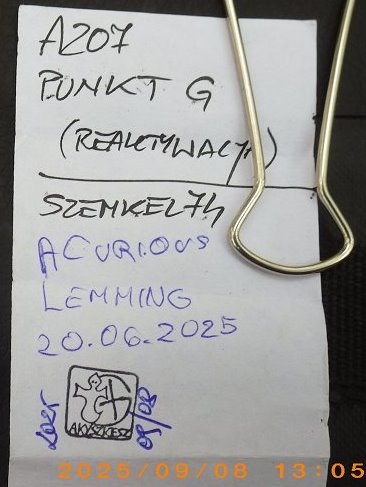 A207
PUNKT G
(REAKTYWACJA)
SZEMKEL74
ACURIOUS
LEMMING
20.06.2025
2025
AKYSZKESZ
09/08
2025/09/08 13:05